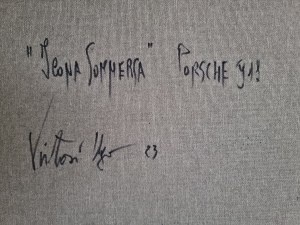 "Icona Sommersa" Porsche 911
Vittori 23